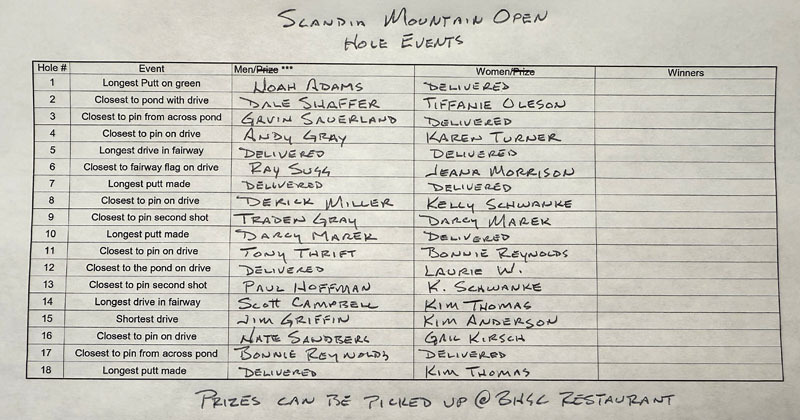 SCANDIA MOUNTAIN OPEN
HOLE EVENTS
Hole # Event Men/Prize *** Women/Prize Winners
1 Longest Putt on green NOAH ADAMS DELIVERED
2 Closest to pond with drive DALE SHAFFER TIFFANIE OLESON
3 Closest to pin from across pond GAVIN SAUERLAND DELIVERED
4 Closest to pin on drive ANDY GRAY KAREN TURNER
5 Longest drive in fairway DELIVERED DELIVERED
6 Closest to fairway flag on drive RAY SUGG JEANA MORRISON
7 Longest putt made DELIVERED DELIVERED
8 Closest to pin on drive DERICK MILLER KELLY SCHWANKE
9 Closest to pin second shot TRADEN GRAY DARCY MAREK
10 Longest putt made DARCY MAREK DELIVERED
11 Closest to pin on drive TONY THRIFT BONNIE REYNOLDS
12 Closest to the pond on drive DELIVERED LAURIE W.
13 Closest to pin second shot PAUL HOFFMAN K. SCHWANKE
14 Longest drive in fairway SCOTT CAMPBELL KIM THOMAS
15 Shortest drive JIM GRIFFIN KIM ANDERSON
16 Closest to pin on drive NATE SANDBERG GAIL KIRSCH
17 Closest to pin from across pond BONNIE REYNOLDS DELIVERED
18 Longest putt made DELIVERED KIM THOMAS
PRIZES CAN BE PICKED UP @ BHGC RESTAURANT